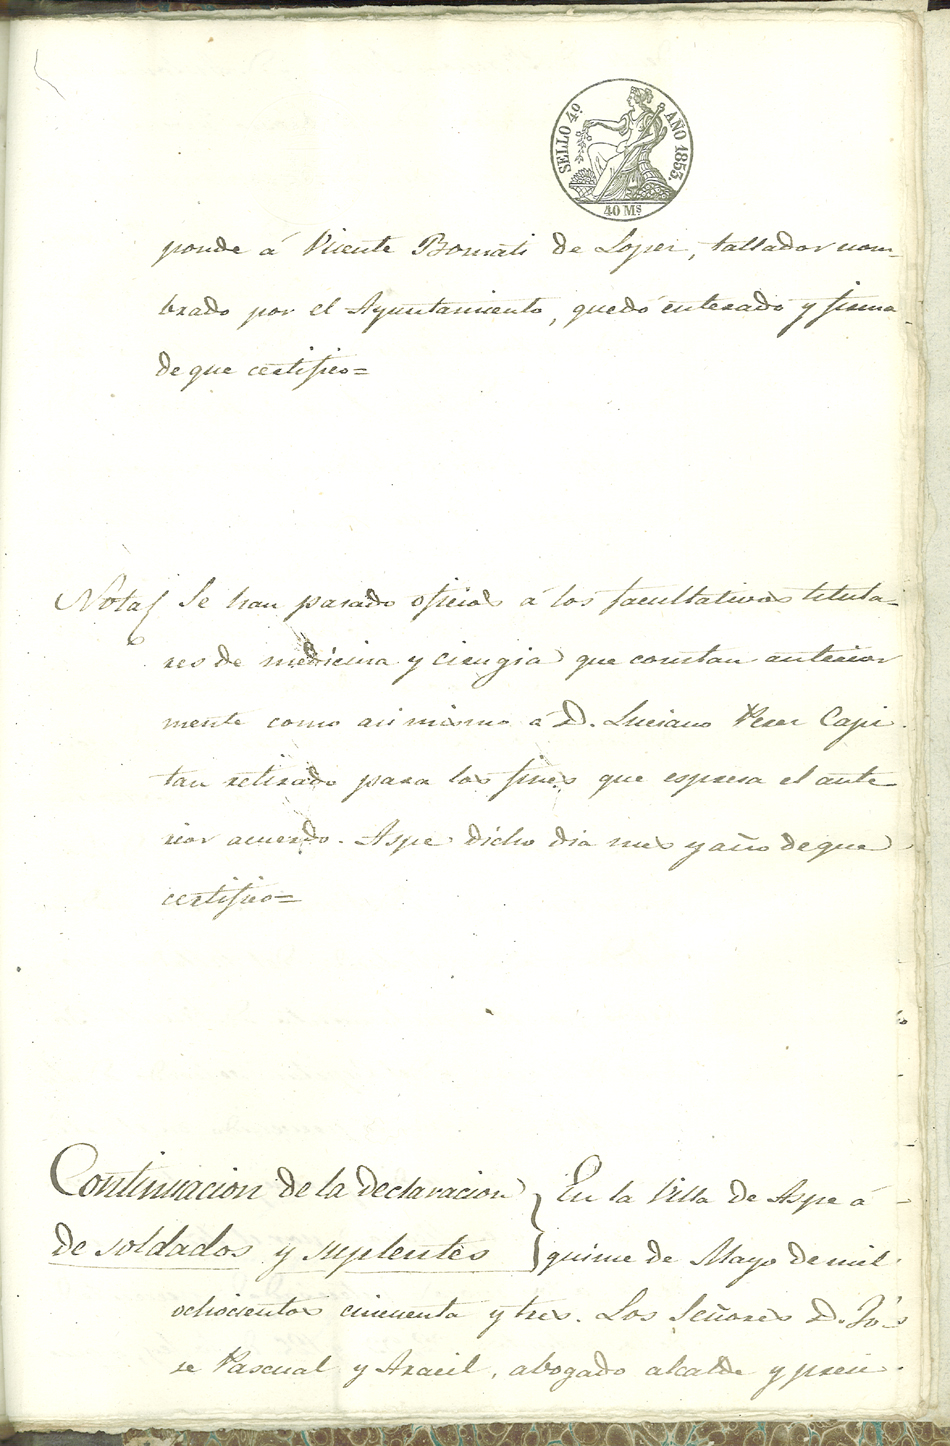 SELLO 4º AÑO 1853.
40 Ms
ponde á Vicente Bonmati de Loper, tallador nom-
brado por el Ayuntamiento, quedó enterado y firma
de que certifico=
Nota Se han pasado oficios á los facultativos titula-
res de medicina y cirugia que constan anterior
mente como asi mismo á D. Luciano Perez Capi
tan retirado para los fines que espresa el ante
rior acuerdo. Aspe dicho dia mes y año de que
certifico=
Continuacion de la declaracion
de soldados y suplentes
En la Villa de Aspe á
quince de Mayo de mil
ochocientos cincuenta y tres. Los Señores D. Jo-
se Pascual y Aracil, abogado alcalde y presi